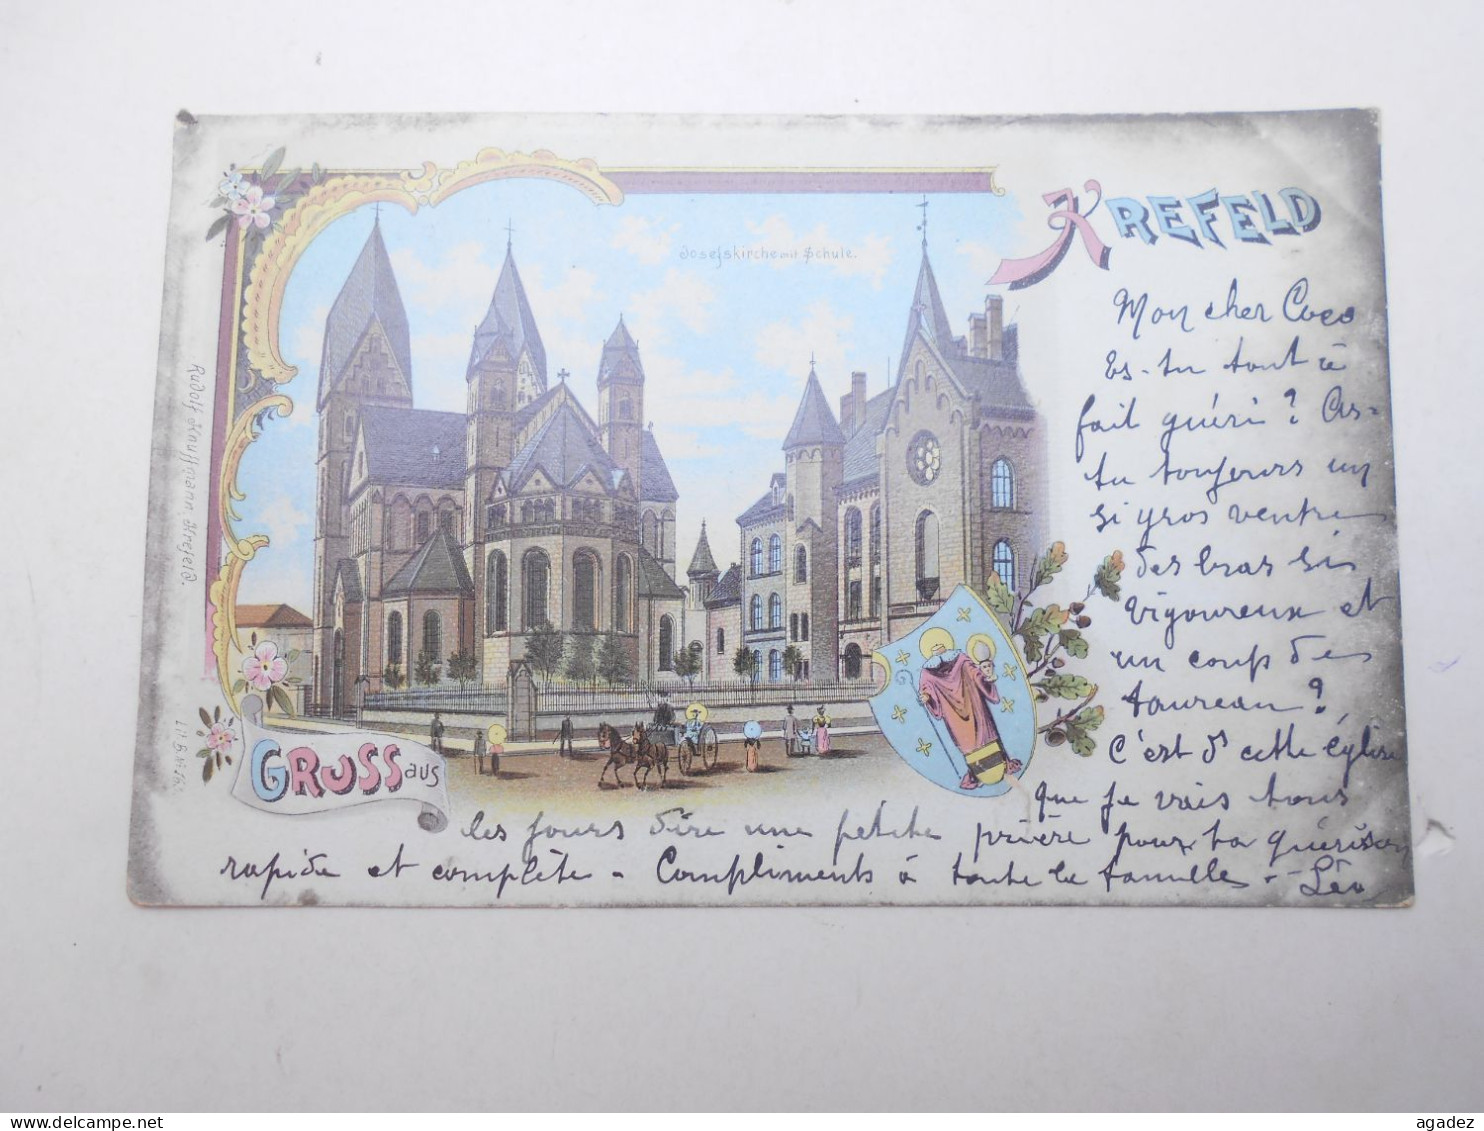 KREFELD
Josefskirche mit Schule.
Rudolf Kauffmann, Krefeld.
GRUSS aus
Mon cher Coco
Es-tu tout à
fait guéri? As-
tu toujours un
si gros ventre
des bras si
vigoureux et
un coup de
taureau?
C'est d cette église
que je vais tous
les jours dire une petite prière pour ta guérison
rapide et complète - Compliments à toute la famille - Léo
www.delcampe.net
agadez